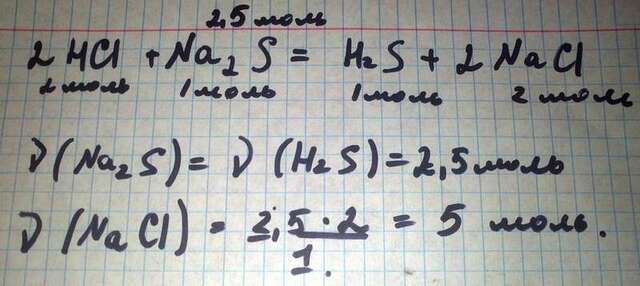 2,5 моль
2 HCl + Na₂S = H₂S + 2 NaCl
2 моль 1 моль 1 моль 2 моль
ν(Na₂S) = ν(H₂S) = 2,5 моль
ν(NaCl) = 2,5 · 2 = 5 моль.
1.